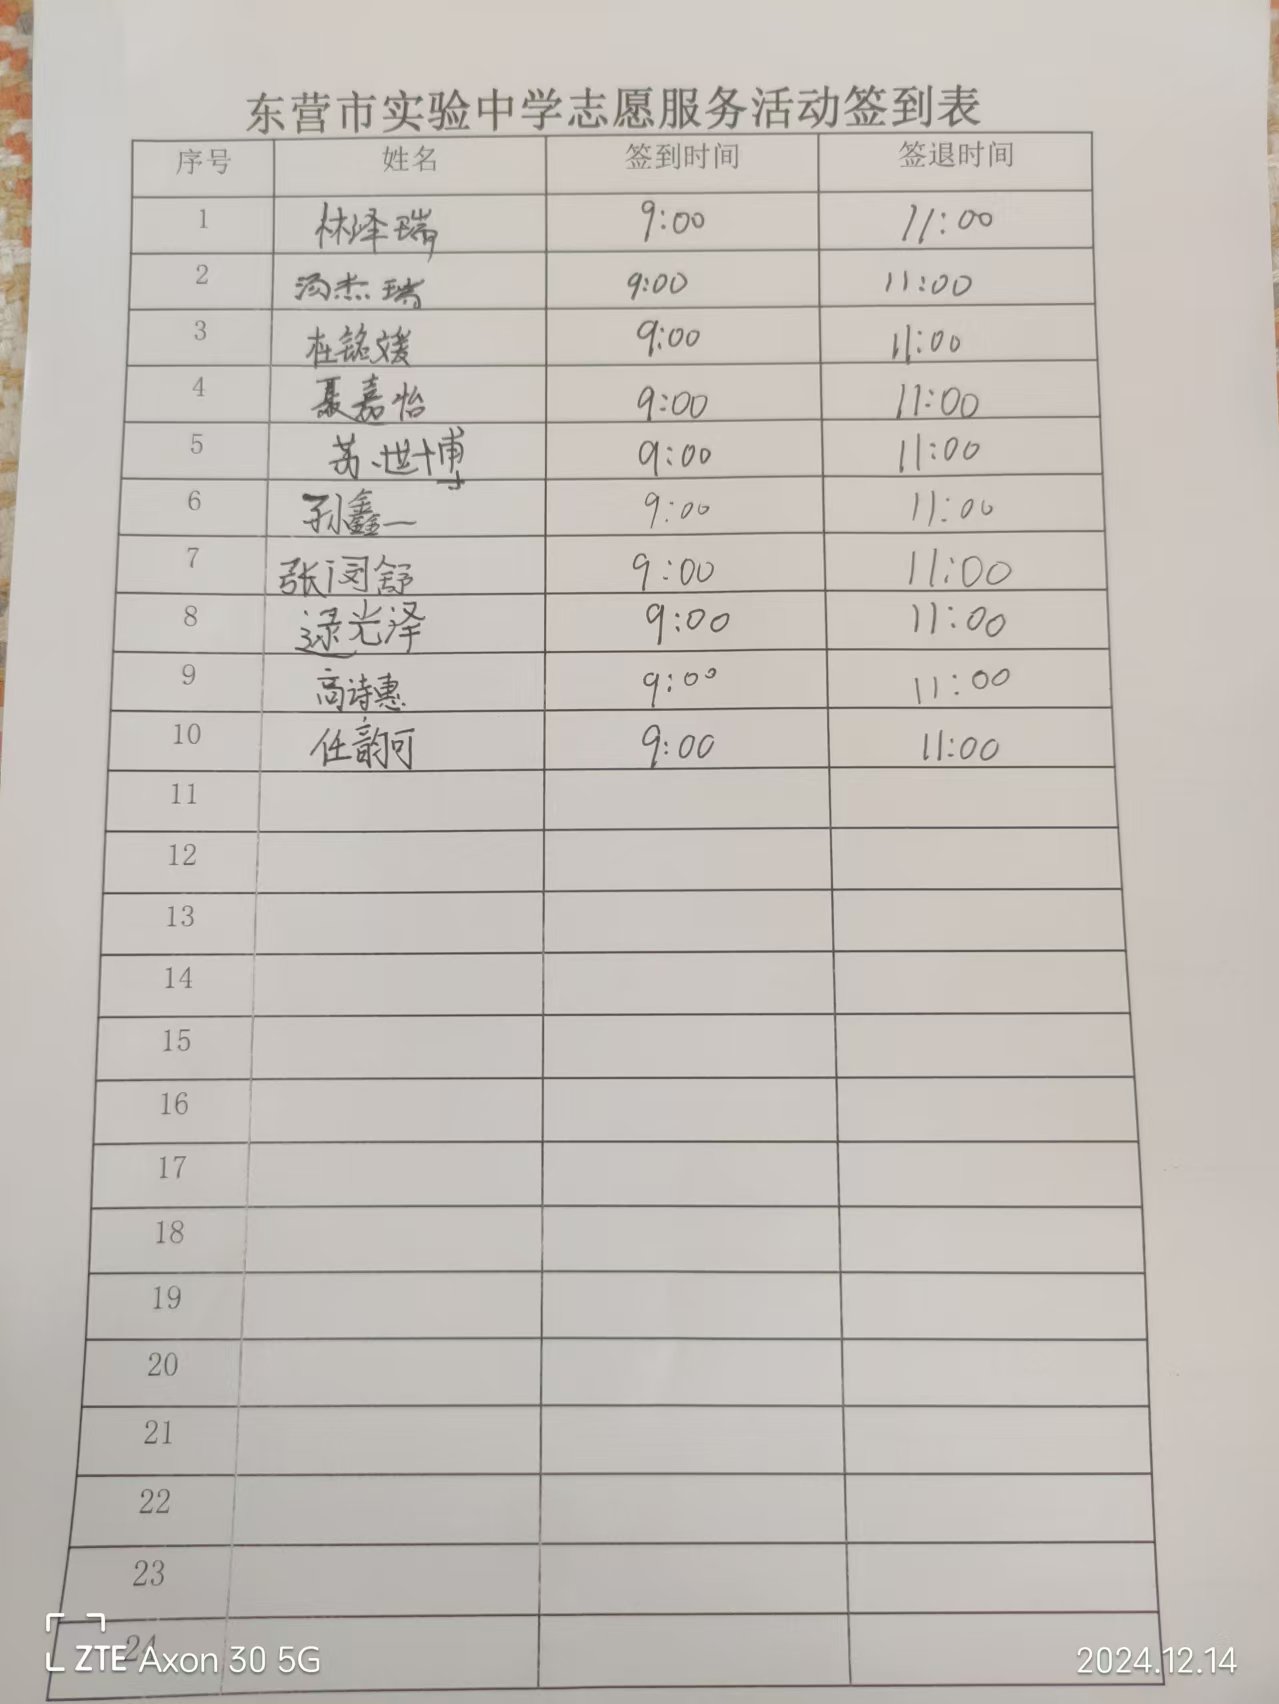 东营市实验中学志愿服务活动签到表
序号 姓名 签到时间 签退时间
1 林泽瑞 9:00 11:00
2 汤杰瑞 9:00 11:00
3 杜铭媛 9:00 11:00
4 聂嘉怡 9:00 11:00
5 苏世博 9:00 11:00
6 孙鑫一 9:00 11:00
7 张闵舒 9:00 11:00
8 逯光泽 9:00 11:00
9 高诗惠 9:00 11:00
10 任韵可 9:00 11:00
11
12
13
14
15
16
17
18
19
20
21
22
23
24
ZTE Axon 30 5G 2024.12.14